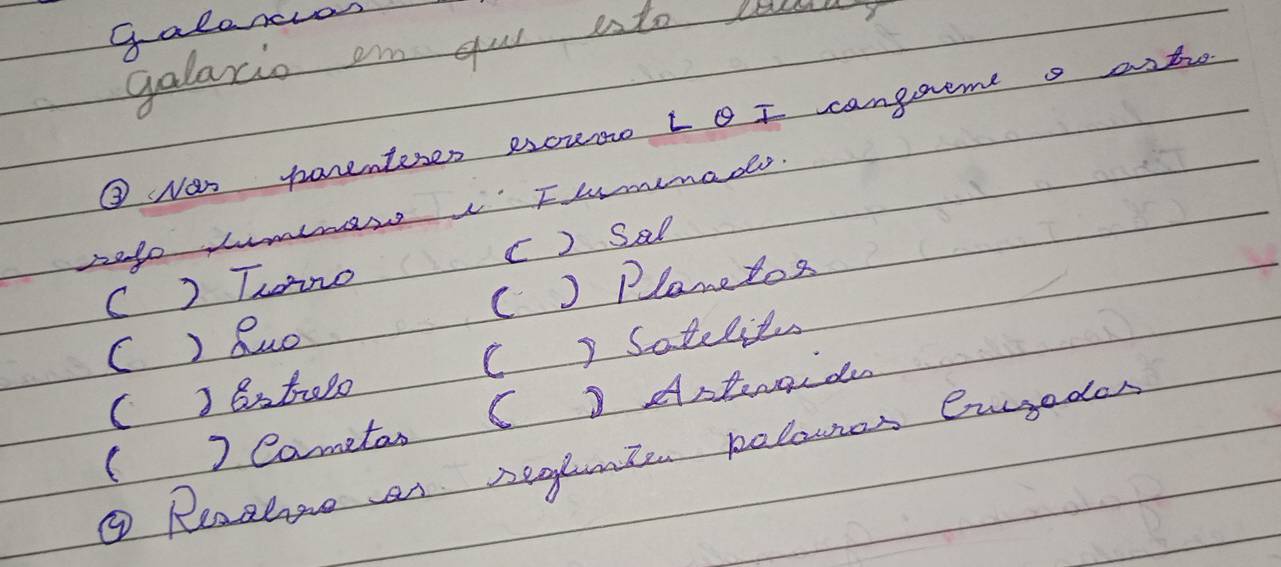 galaxias
galaxia em que esta
③ Nos parenteses escreva L O I conforme o astro
seja luminoso i Iluminado.
( ) Terra ( ) Sol
( ) Lua ( ) Planetas
( ) Estrela ( ) Satelites
( ) Cometas ( ) Asteroides
④ Resolva as seguintes palavras Cruzadas